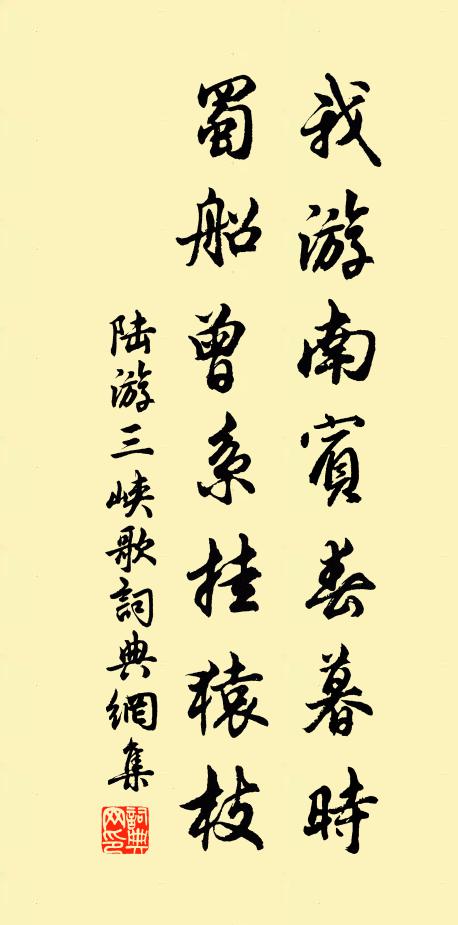 我游南賓春暮時
蜀船曾系挂猿枝
陆游三峡歌詞典網集
詞典网印